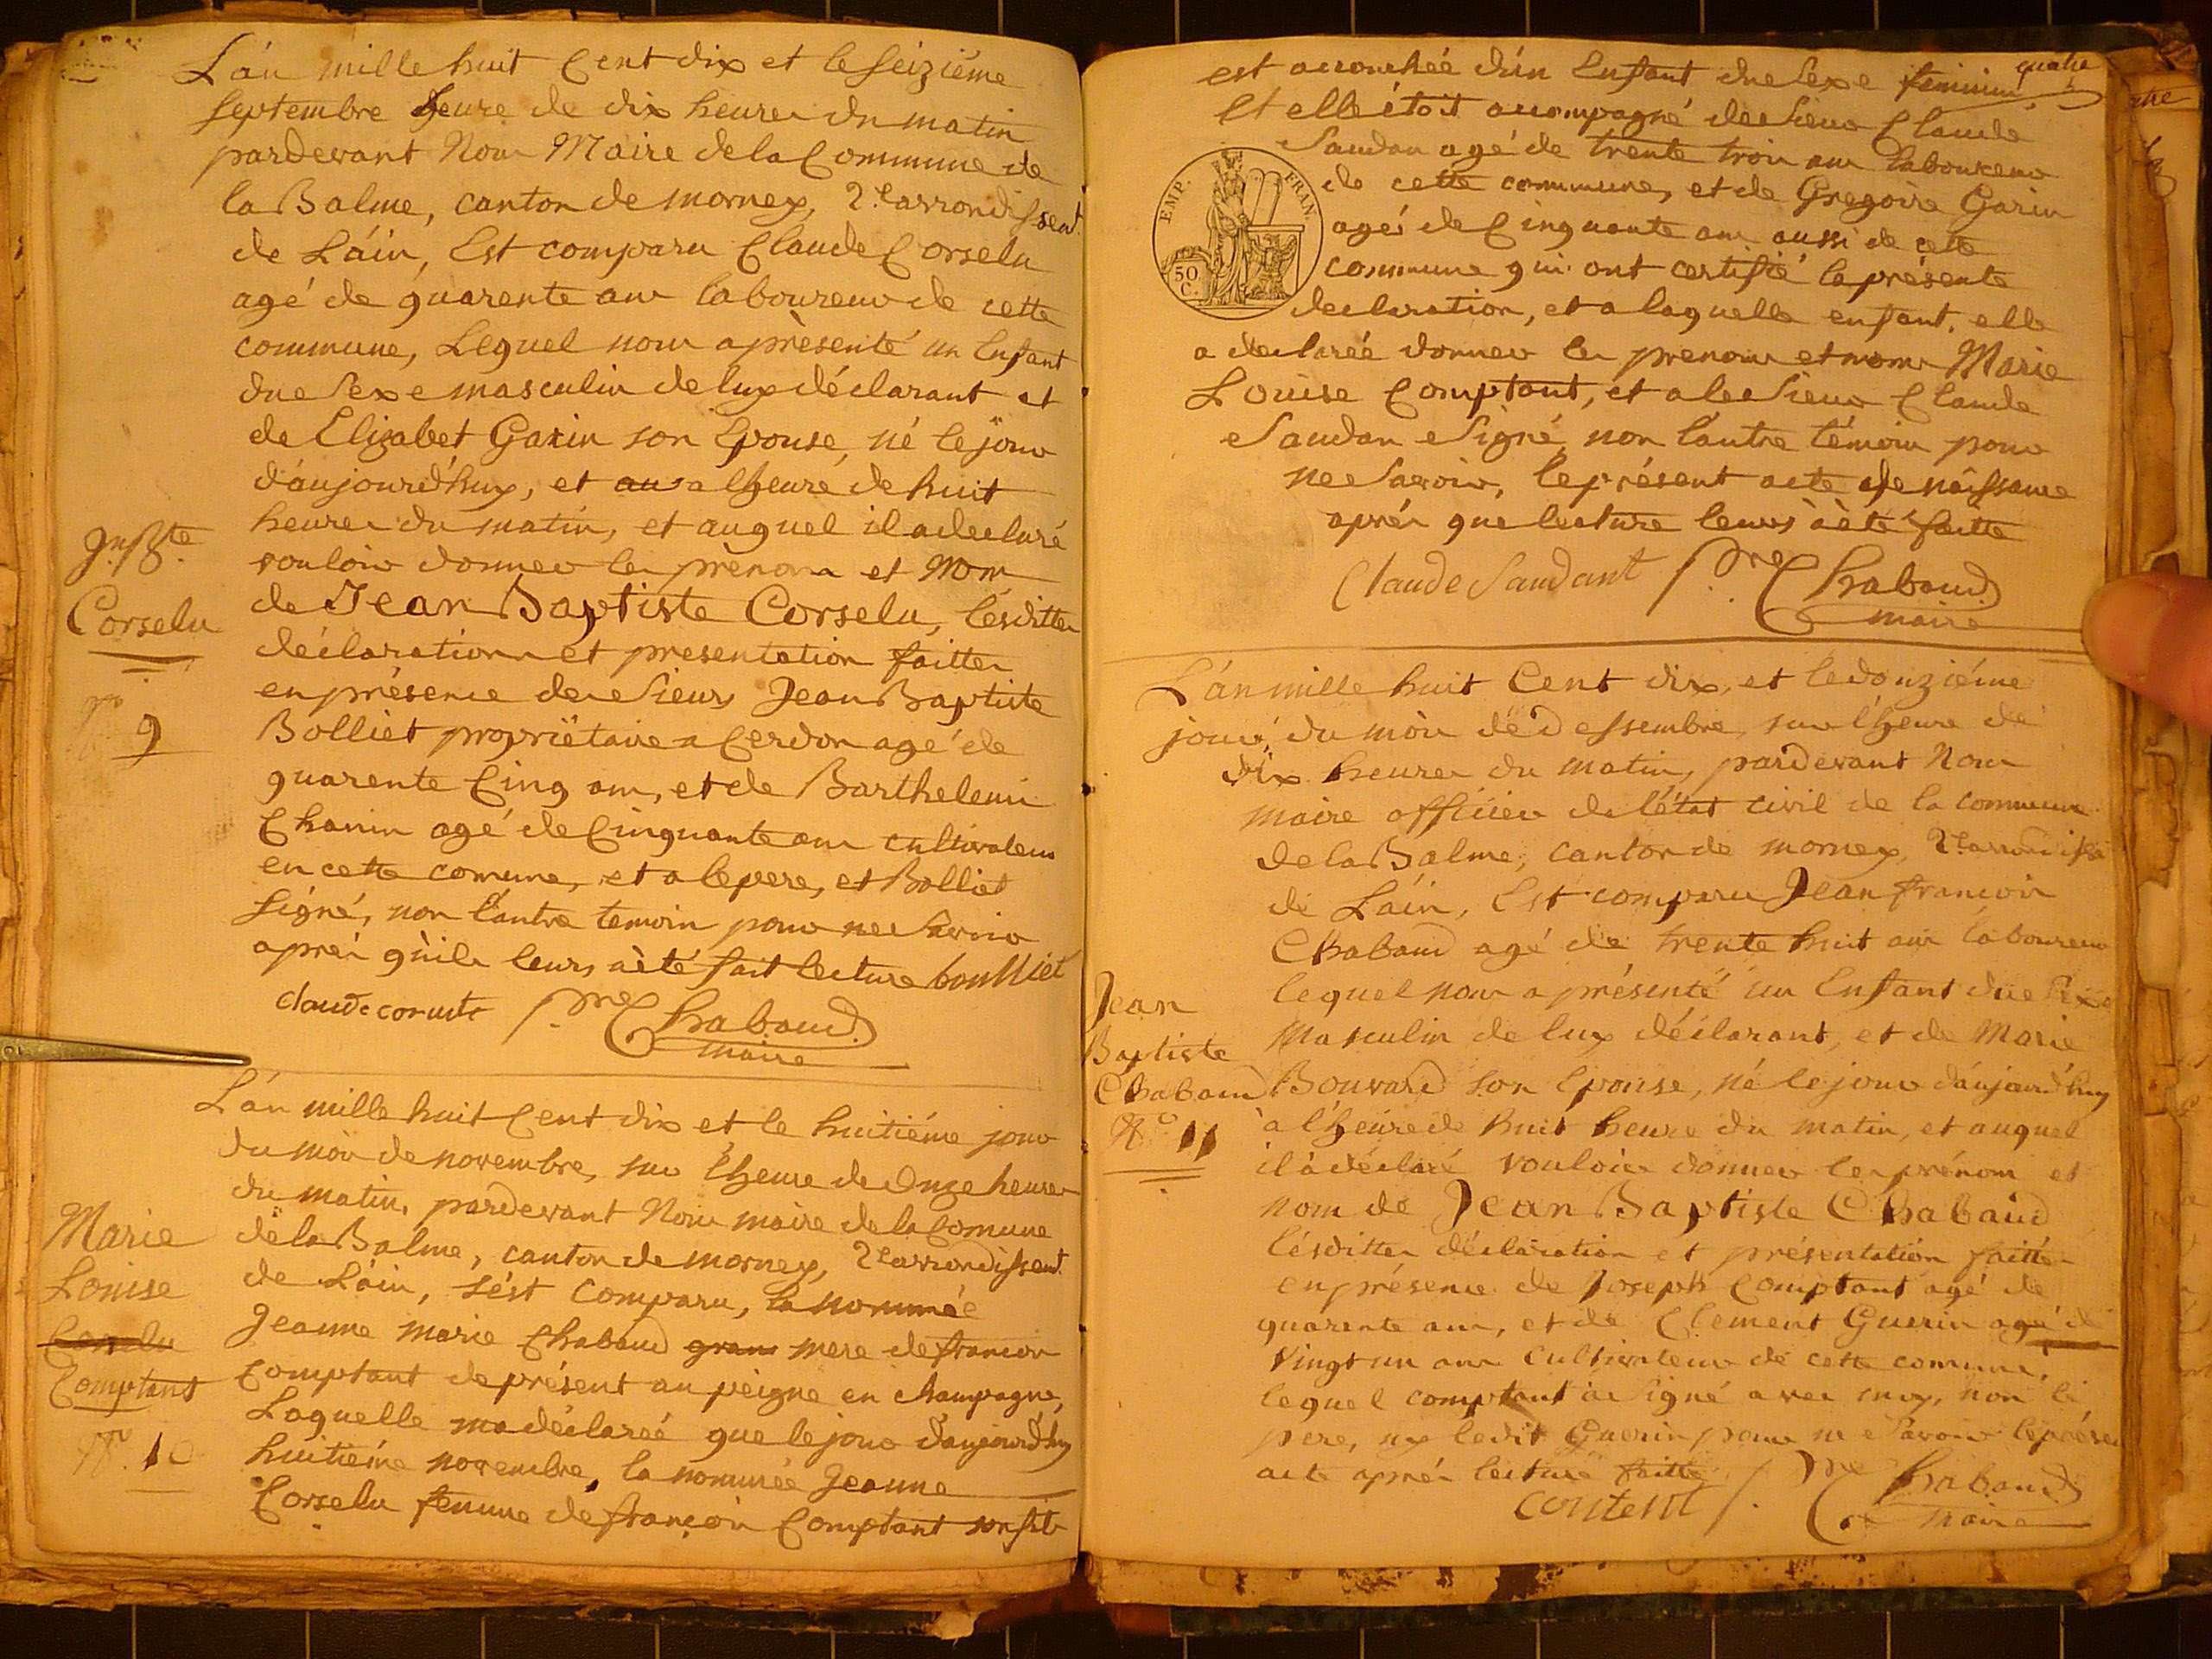 L'án mille huit Cent dix et le seiziéme
septembre heure de dix heures du matin
pardevant Nous Maire de la Commune de
la Balme, canton de mornex, 2.e arrondissent.
de Láin, Est comparu Claude Corselu
agé de quarente ans laboureur de cette
commune, Lequel nous a présenté un Enfant
du Sexe masculin de luy déclarant et
de Elizabet Garin son Epouse, né le jour
d'aujourd'huy, et au a lheure de huit
heures du matin, et auquel il a declaré
vouloir donner les prènom et Nom
de Jean Baptiste Corselu, lésdittes
déclarations et presentation faittes
en présence des Sieurs Jean Baptiste
Bolliet propriëtaire a Cerdon agé de
quarente Cinq ans, et de Barthelemi
Chanin agé de Cinquante ans cultivateur
en cette comune, et a le pere, et Bolliet
Signé, non l'autre temoin pour ne Savoir
aprés qu'ils leurs à été fait lecture boulliet
Claude
Chabaud
maire
Corselu
9
L'án mille huit Cent dix et le huitiéme jour
du mois de novembre, sur l'heure de Onze heures
du matin, pardevant Nous maire de la Comune
de la Balme, canton de mornex, 2.e arrondissent.
de Láin, s'ést Comparu, la nommée
Jeanne marie Chabaud gran mere de françois
Comptant de présent au peigne en champagne,
Laquelle ma déclaréé que le jour d'aujourd'huy
huitiéme novembre, la nommée Jeanne
Corselu femme de françois Comptant son fils
Marie
Louise
Corselu
Comptant
N.o 10
quatre
est accouchéé d'ún Enfant du Sexe feminin
Et elle étoit accompagné des Sieurs Claude
Saudan agé de trente trois ans laboureur
de cette commune, et de Gregoire Garin
agé de Cinquante ans aussi de cette
commune qui ont certifié la présente
declaration, et a laquelle enfant, elle
a declaréé donner les prenoms et noms Marie
Louise Comptant, et a le Sieur Claude
Saudan Signé, non l'autre témoin pour
ne Savoir, le présent acte de naissance
aprés que lecture leurs à été faitte
EMP. FRAN.
50 C.
Claude Saudant
Chabaud
maire
L'án mille huit Cent dix, et le douziéme
jour, du mois de dessembre, sur l'heure de
dix heures du matin, pardevant Nous
maire officier de l'état civil de la commune
de la Balme, canton de mornex, 2.e arrondisse
de Láin, Est comparu Jean françois
Chabaud agé de trente huit ans laboureur
lequel nous a présenté un Enfant du Sexe
Masculin de luy déclarant, et de Marie
Bouvard son Epouse, né le jour d'aujourd'huy
à l'heure de huit heure du matin, et auquel
il à déclaré vouloir donner les prénom et
nom de Jean Baptiste Chabaud
lésdittes déclaration et présentation faittes
en présence de Joseph Comptant agé de
quarente ans, et de Clement Guerin agé de
vingt un ans Cultivateur de cette comune,
lequel comptant a Signé avec moy, non le
pere, ny ledit Guerin pour ne Savoir
acte aprés lecture faitte
content
Chabaud
maire
Jean
Baptiste
Chabaud
N.o 11